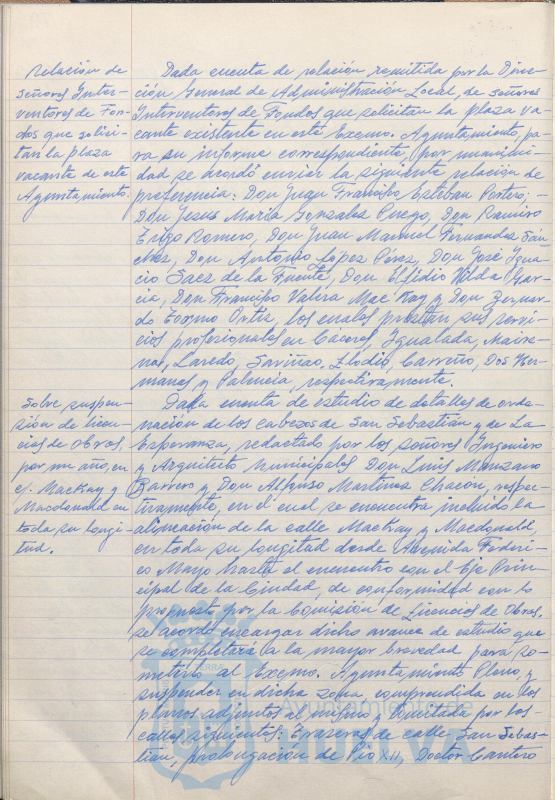 Relación de
señores Inter-
ventores de Fon-
dos que solici-
tan la plaza
vacante de este
Ayuntamiento.
Dada cuenta de relación remitida por la Direc-
ción General de Administración Local, de señores
Interventores de Fondos que solicitan la plaza va-
cante existente en este Excmo. Ayuntamiento, pa-
ra su informe correspondiente, por unanimi-
dad se acordó enviar la siguiente relación de
preferencia: Don Juan Francisco Esteban Portero;-
Don Jesus María Gonzales Pueyo, Don Ramiro
Erigo Romero, Don Juan Manuel Fernandez Sán
chez, Don Antonio López Perez, Don José Igna-
cio Saez de la Fuente, Don Elfidio Vilda Gar-
cia, Don Francisco Valera Mac Kay y Don Bernar-
do Cosmo Ortiz, los cuales prestan sus servi-
cios profesionales en Cáceres, Igualada, Maire-
na, Laredo, Saviñao, Llodio, Carreño, Dos Her-
manas y Palencia, respectivamente.
Sobre suspen-
sión de licen-
cias de obras,
por un año, en
c/. MacKay y
Macdonald en
toda su longi-
tud.
Dada cuenta de estudio de detalles de orde-
nacion de los Cabezos de San Sebastián y de La
Esperanza, redactado por los señores Ingeniero
y Arquitecto Municipales Don Luis Manzano
Barrero y Don Alfonso Martinez Chacon, respec-
tivamente, en el cual se encuentra incluido la
alineación de la calle MacKay y Macdonald,
en toda su longitud desde Avenida Federi-
co Mayo hasta el encuentro con el Eje Prin-
cipal de la Ciudad, de conformidad con lo
propuesto por la Comisión de Licencias de Obras,
se acordó encargar dicho avance de estudio que
se completará a la mayor brevedad para so-
meterlo al Excmo. Ayuntamiento Pleno, y
suspender en dicha zona, comprendida en los
planos adjuntos al mismo y limitada por las
calles siguientes: Traseras de calle San Sebas-
tián, prolongación de Pio XII, Doctor Cantero
TERRA
Ayuntamiento de
HUELVA